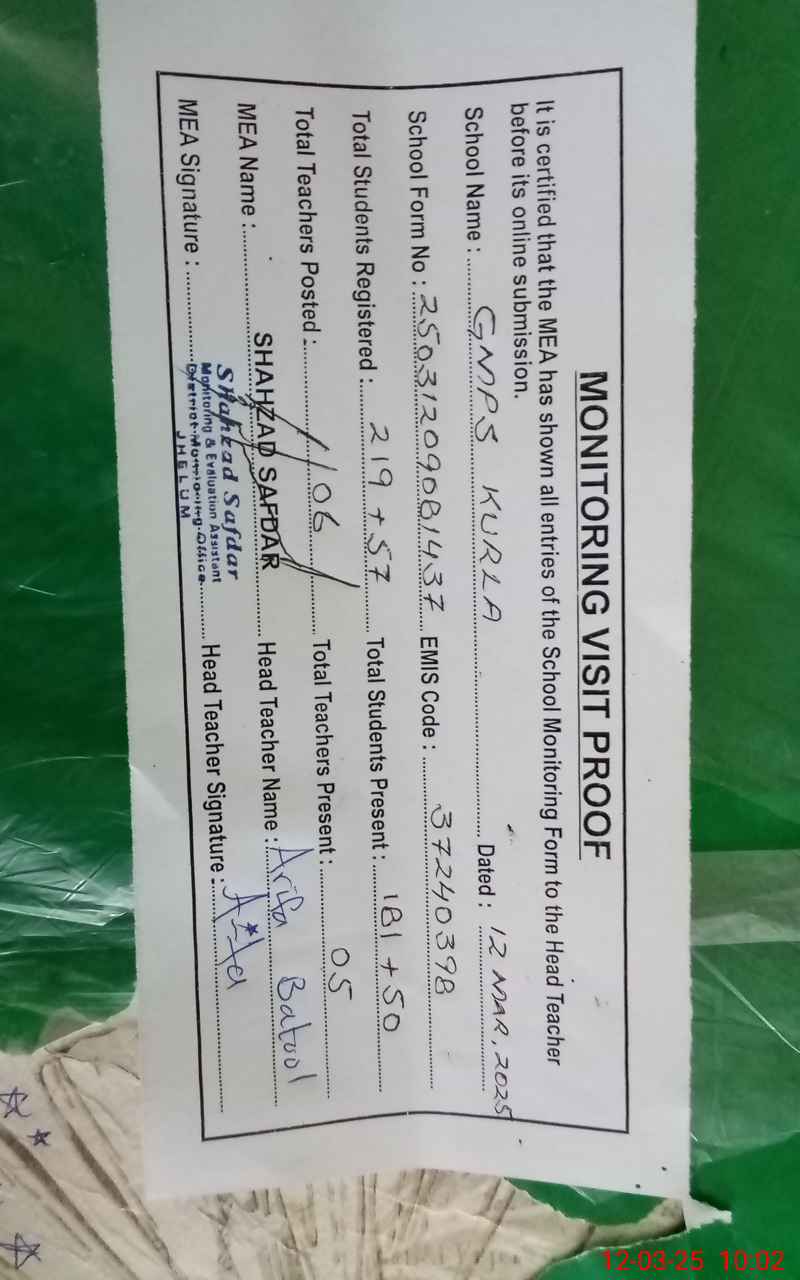 MONITORING VISIT PROOF
It is certified that the MEA has shown all entries of the School Monitoring Form to the Head Teacher
before its online submission.
School Name : GMPS KURLA Dated : 12 MAR, 2025
School Form No : 25031209081437 EMIS Code : 37240398
Total Students Registered : 219 + 57 Total Students Present : 181 + 50
Total Teachers Posted : 06 Total Teachers Present : 05
MEA Name : SHAHZAD SAFDAR Head Teacher Name : Arifa Batool
MEA Signature : Head Teacher Signature :
Shahzad Safdar
Monitoring & Evaluation Assistant
District Monitoring Office
JHELUM
12-03-25 10:02